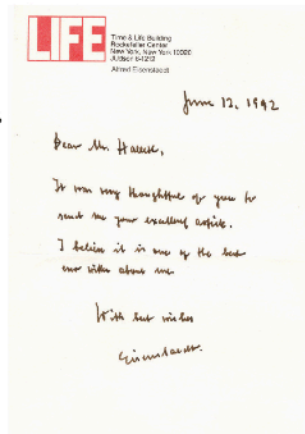 LIFE
Time & Life Building
Rockefeller Center
New York, New York 10020
JUdson 6-1212
Alfred Eisenstaedt
June 12, 1992
Dear Mr.
It was very thoughtful of you to
send me your excellent article.
I believe it is one of the best
ever written about me.
With best wishes
Eisenstaedt.